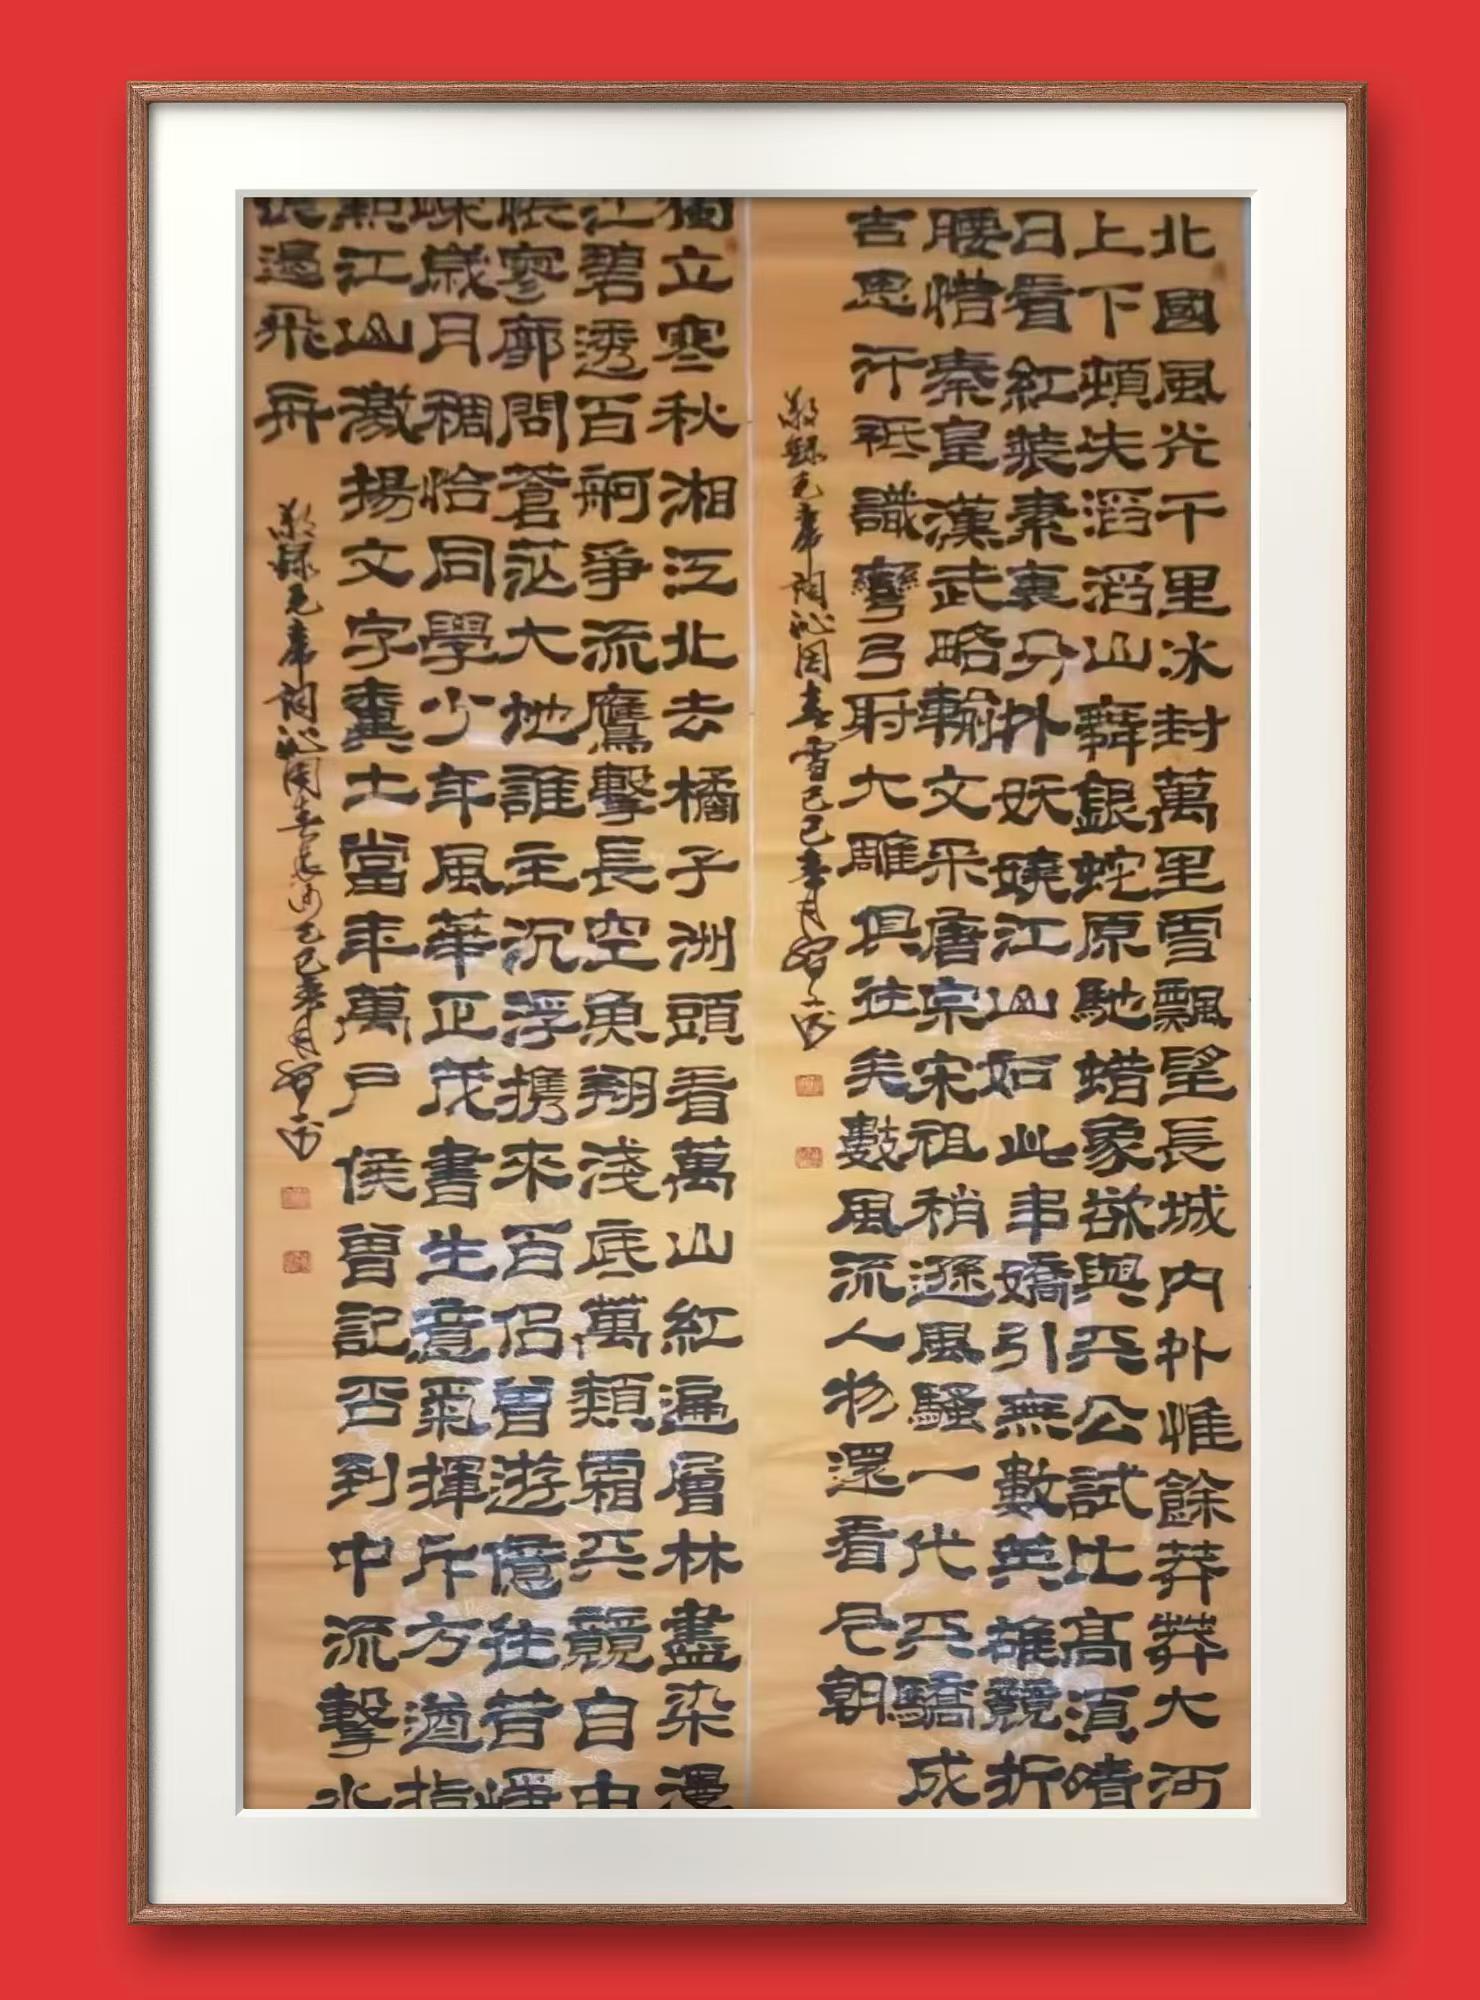 北國風光千里冰封萬里雪飄望長城內外惟餘莽莽大河
上下頓失滔滔山舞銀蛇原馳蜡象欲與天公試比高須晴
日看紅裝素裹分外妖嬈江山如此多嬌引無數英雄競折
腰惜秦皇漢武略輸文采唐宗宋祖稍遜風騷一代天驕成
吉思汗祗識彎弓射大雕俱往矣數風流人物還看今朝
敬録毛席詞沁园春雪己巳春月
獨立寒秋湘江北去橘子洲頭看萬山紅遍層林盡染漫
江碧透百舸爭流鷹擊長空魚翔淺底萬類霜天競自由
悵寥廓問蒼茫大地誰主沉浮携來百侶曾遊憶往昔崢
嶸歲月稠恰同學少年風華正茂書生意氣揮斥方遒指
點江山激揚文字糞土當年萬戶侯曾記否到中流擊水
浪遏飛舟
敬録毛席詞沁园春長沙己巳春月